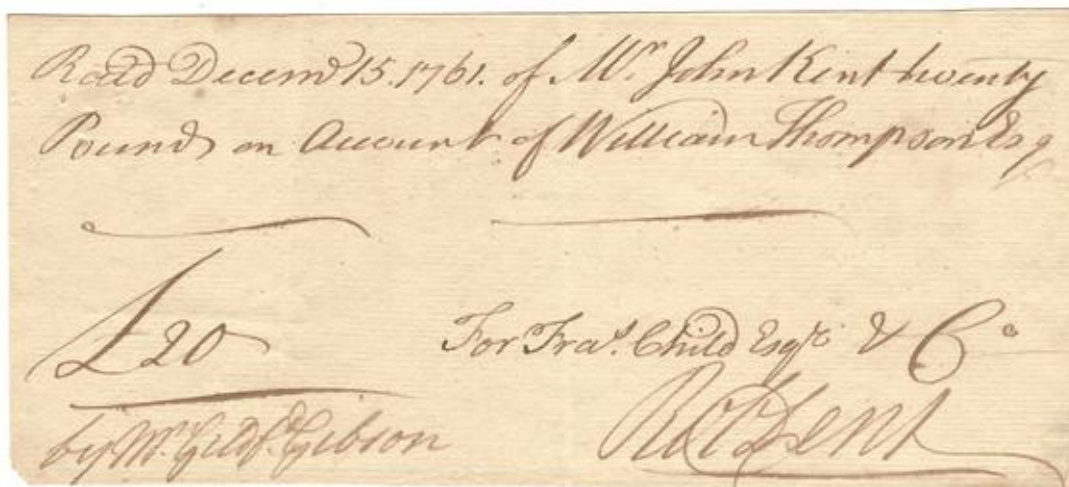 Recd Decemr 15. 1761. of Mr. John Kent twenty
Pounds on Account of William Thompson Esq
£20
For Fras. Child Esqr. & Co
by Mr. Gibson
Rob Dent